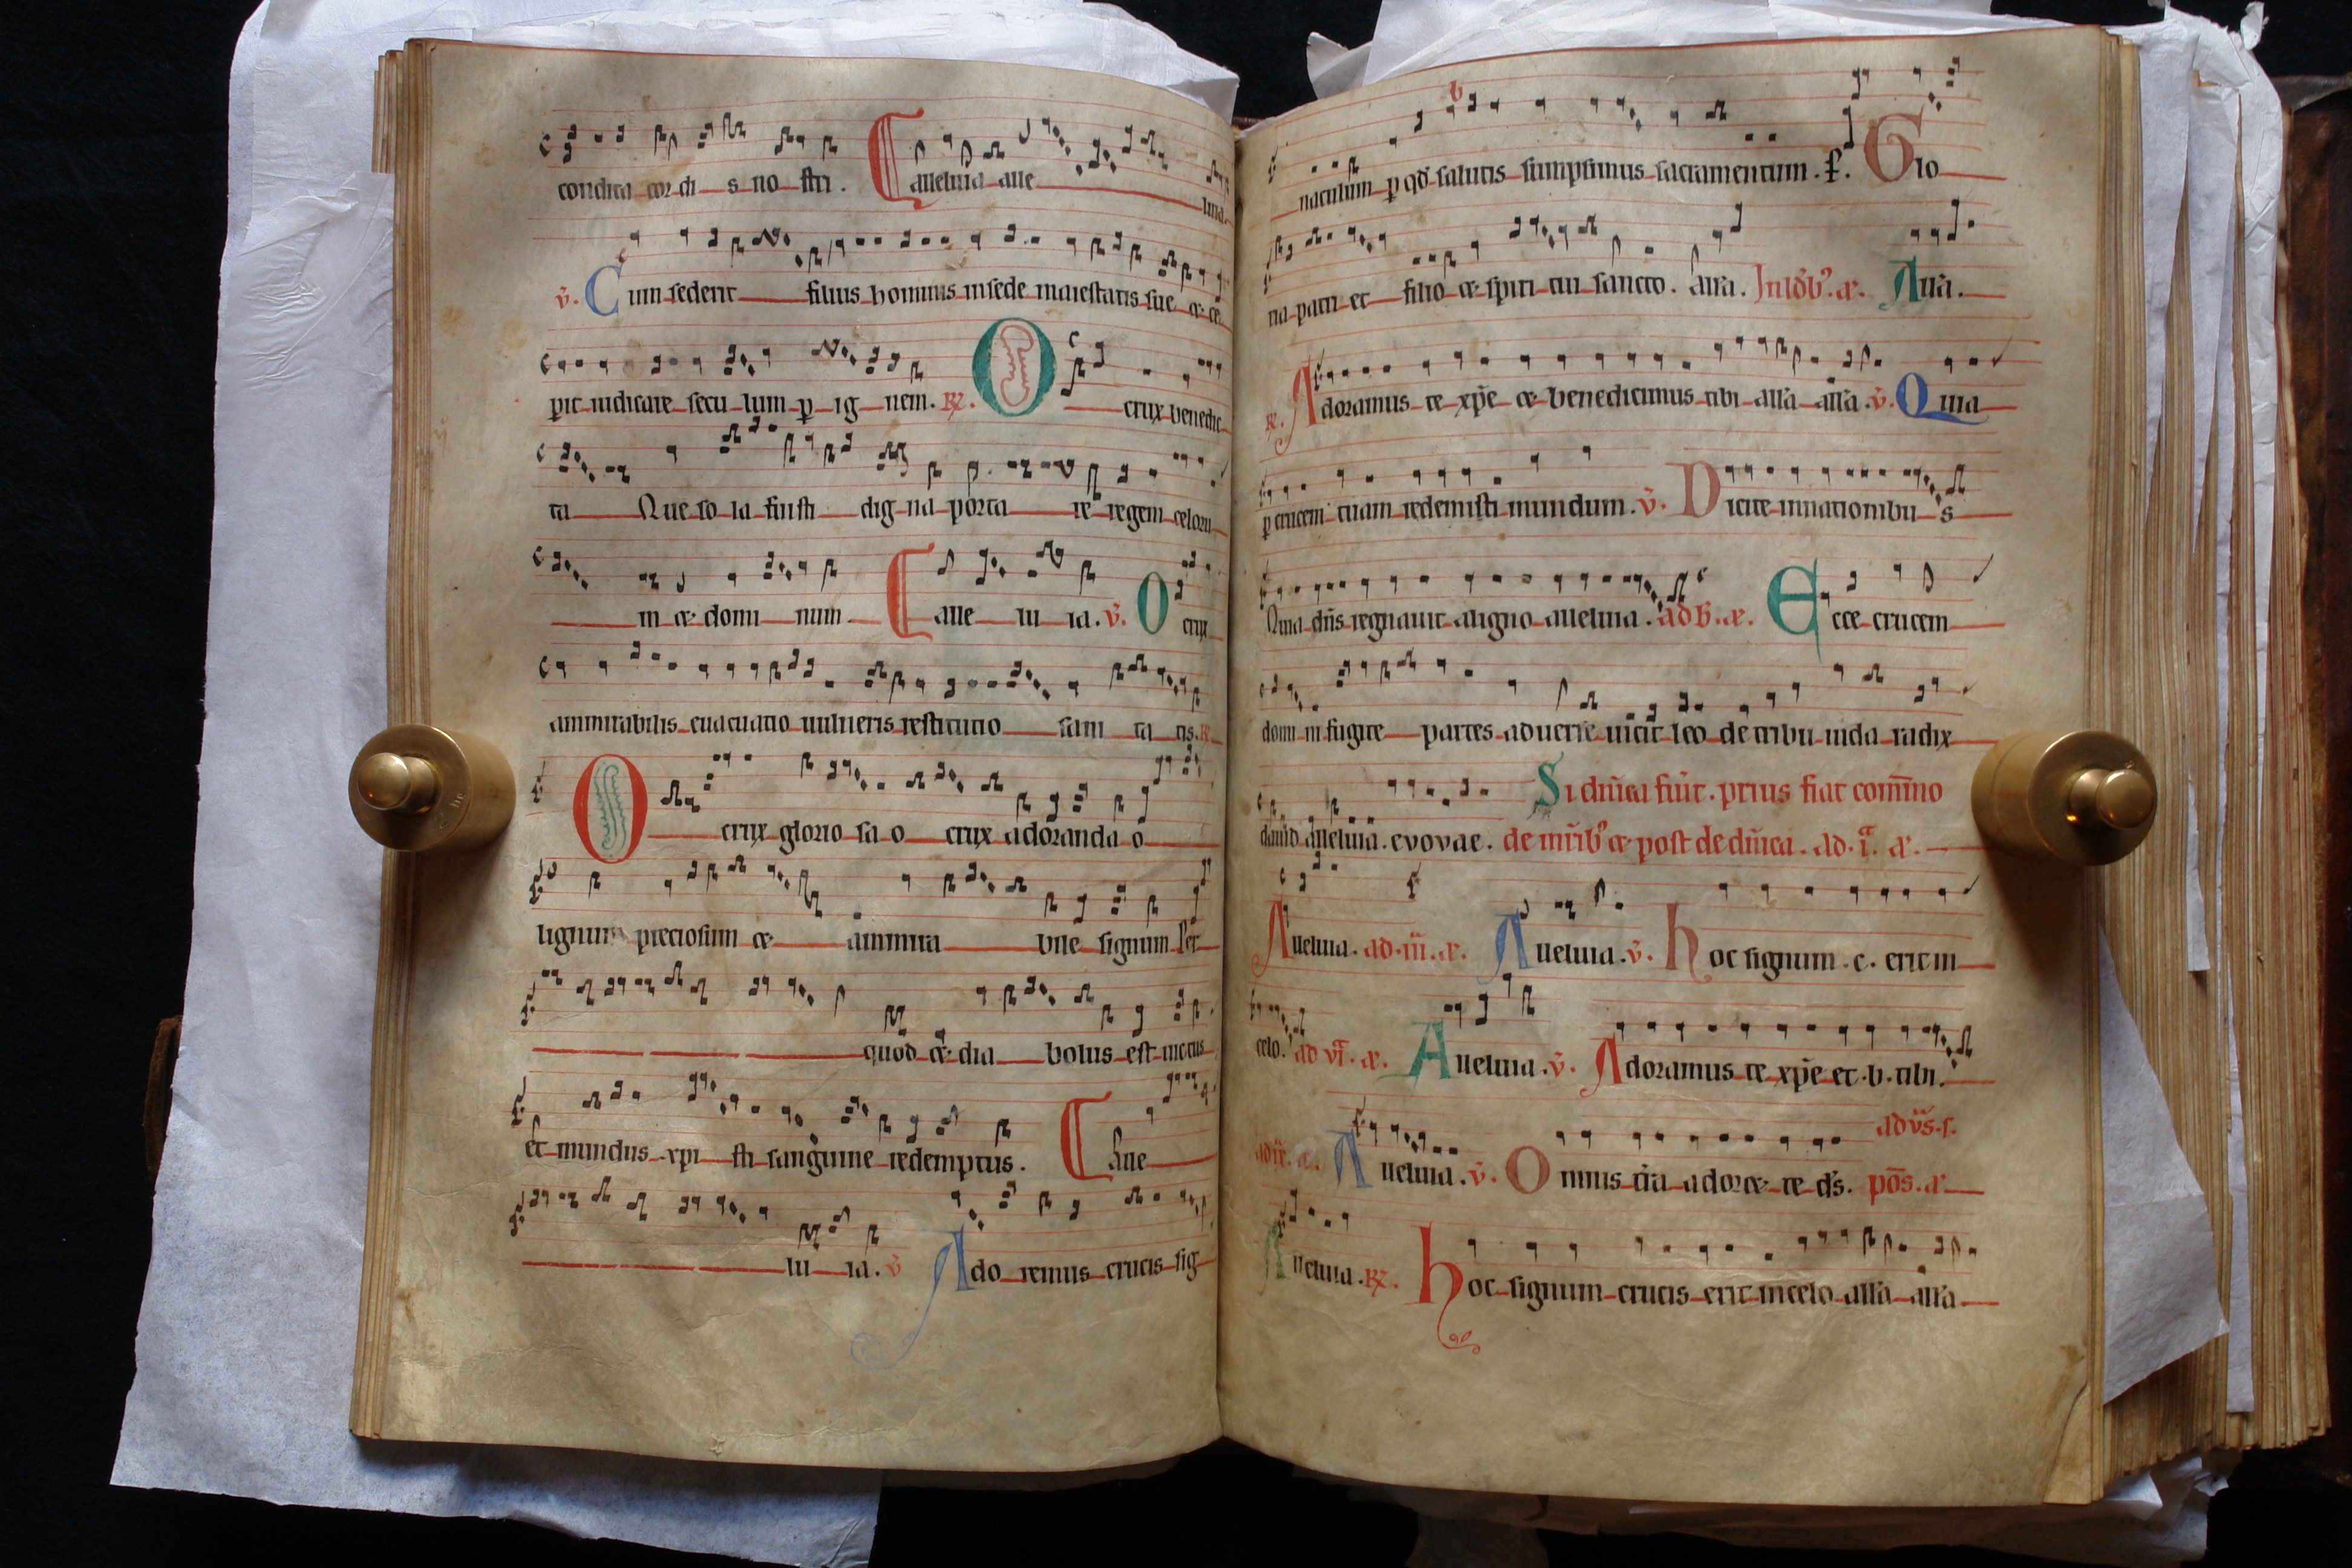 condita cor di s no stri. Calleluia alle luia.
v̄. Cum sederit filius hominis in sede maiestatis sue & ce
pit iudicare seculum p ignem. R̸. O crux benedic
ta Que so la fuisti dig na porta re regem celoru
m & domi num Calle lu ia. v̄. O crux
ammirabilis euacuatio uulneris restitutio sani ta tis. R̸.
O crux glorio sa o crux adoranda o
lignum preciosum & ammira bile signum Per
quod & dia bolus est uictus
et mundus xpi sti sanguine redemptus. C Aue
lu ia. v̄ Ado remus crucis sig
naculum p qd̄ salutis sumpsimus sacramentum. P̸. Glo
ria patri et filio & spiri tui sancto. All'a. In lđb'. æ. All'a.
R̸. Adoramus te xp̄e & benedicimus tibi all'a all'a. v̄. Quia
p crucem tuam redemisti mundum. v̄. Dicite innationibu s
Quia dn̄s regnauit aligno alleluia. ad b̄. æ. Ecce crucem
domi ni fugite partes aduerse uicit leo de tribu iuda radix
Si dn̄ica fuit. prius fiat com̄no
dauid alleluia. evovae. de mr̄ib' & post de dn̄ica. ad. ī. æ.
Alleluia. ad. iii. æ. Alleluia. v̄. hoc signum. c. erit in
celo. ad vī. æ. Alleluia. v̄. Adoramus te xp̄e et. b. tibi.
ad v̄s. s.
Alleluia. v̄. Omnis tr̄a adoret te d's. pō s. æ.
Alleluia. R̸. hoc signum crucis erit incelo all'a all'a